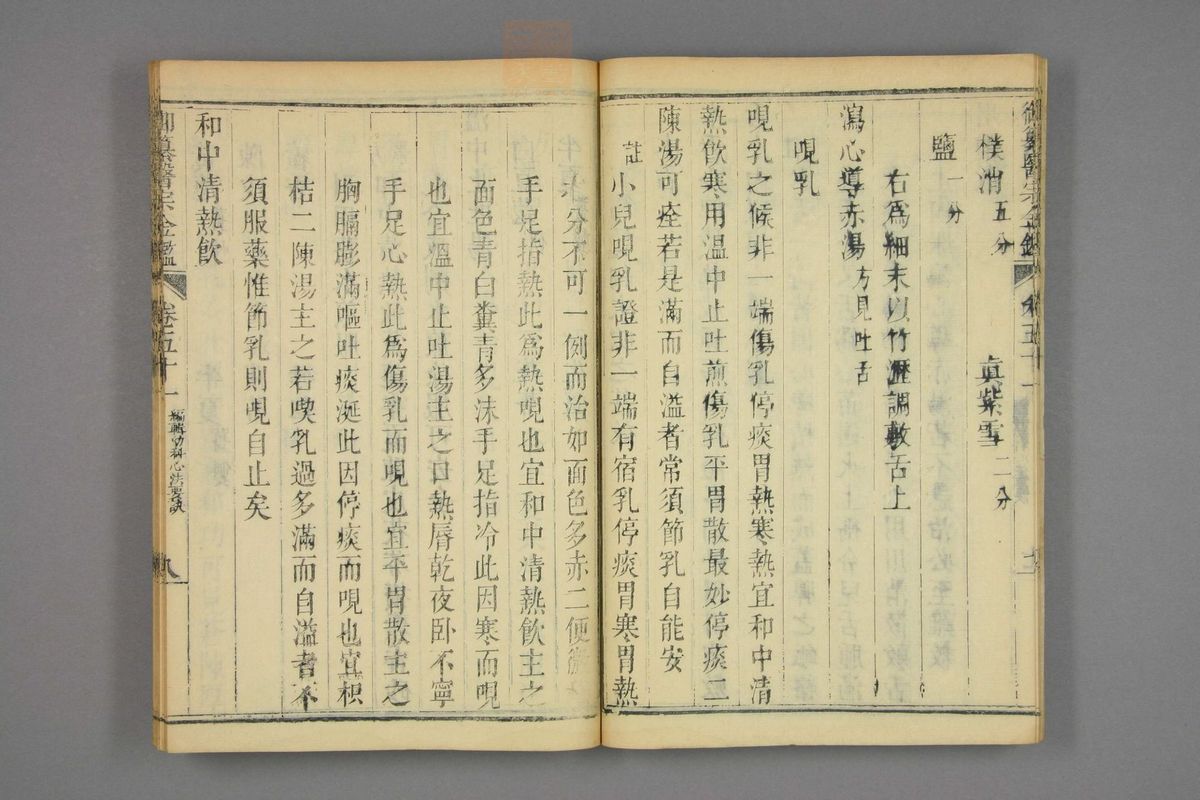 御纂醫宗金鑑 卷五十一
樸硝五分 眞紫雪二分
鹽一分
右爲細末以竹瀝調敷舌上
瀉心導赤湯方見吐舌
哯乳
哯乳之候非一端傷乳停痰胃熱寒熱宜和中清
熱飲寒用溫中止吐煎傷乳平胃散最妙停痰二
陳湯可痊若是滿而自溢者常須節乳自能安
註小兒哯乳證非一端有宿乳停痰胃寒胃熱
之分不可一例而治如面色多赤二便微
手足指熱此爲熱哯也宜和中清熱飲主之
面色青白糞青多沫手足指冷此因寒而哯
也宜溫中止吐湯主之口熱唇乾夜卧不寧
手足心熱此爲傷乳而哯也宜平胃散主之
胸膈膨滿嘔吐痰涎此因停痰而哯也宜枳
桔二陳湯主之若喫乳過多滿而自溢者不
須服藥惟節乳則哯自止矣
和中清熱飲
御纂醫宗金鑑 卷五十一 編輯幼科心法要訣 九